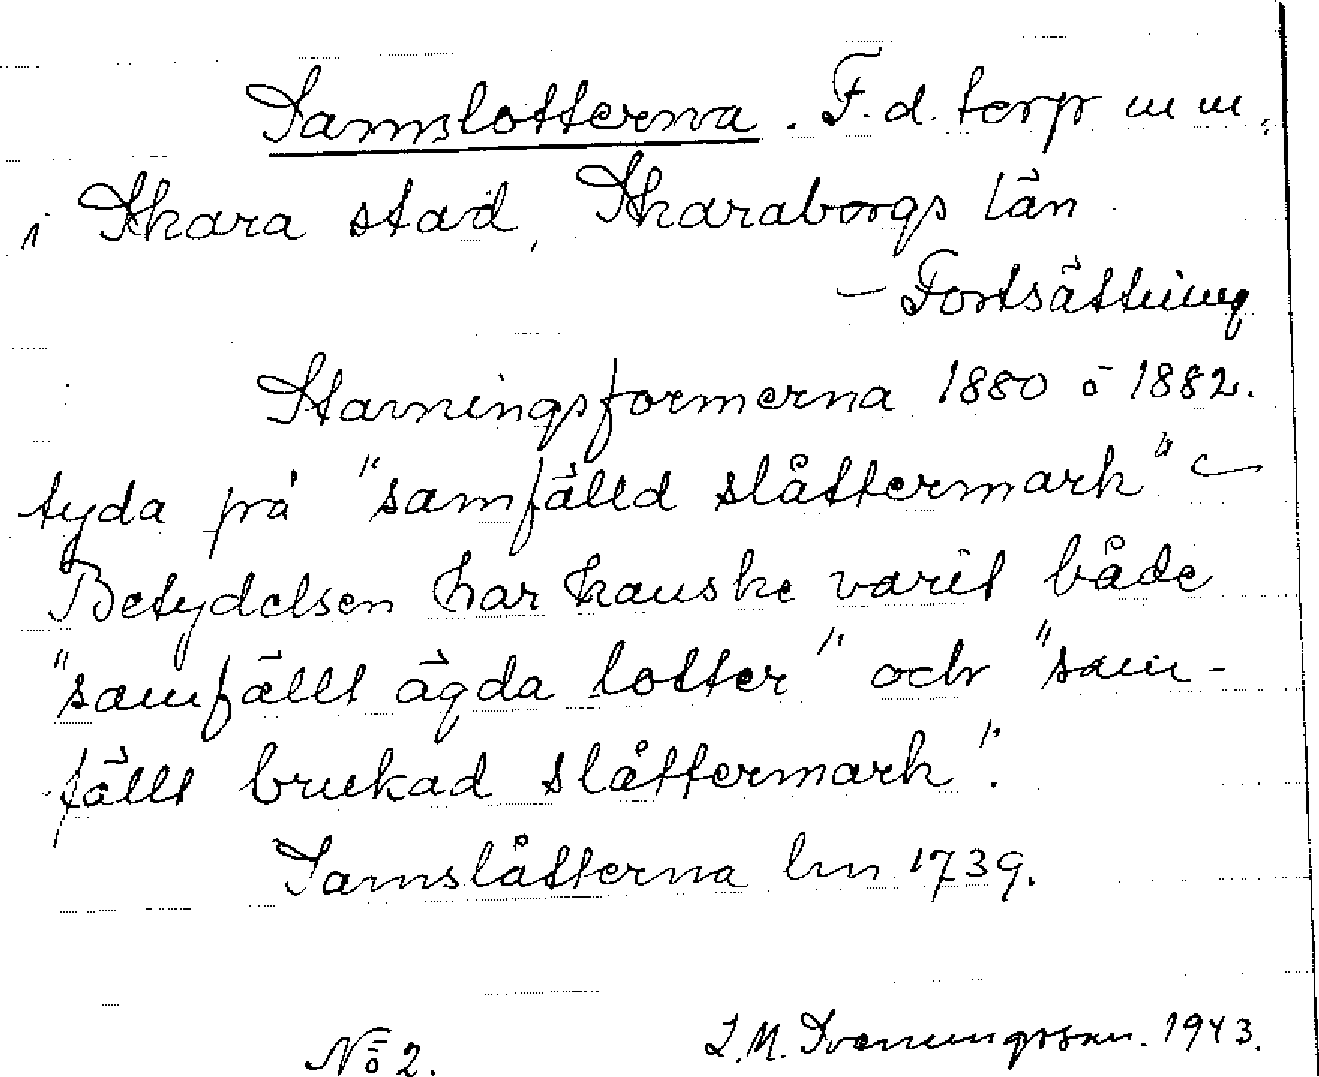 Samslotterna. F.d. torp m m.
i Skara stad, Skaraborgs län.
– Fortsättning
Stavningsformerna 1880 o 1882.
tyda på "samfälld slåttermark" –
Betydelsen har kanske varit både
"samfällt ägda lotter" och "sam-
fällt brukad slåttermark".
Samslåtterna lm 1739.
No 2.
J.M. Svenungsson. 1943.